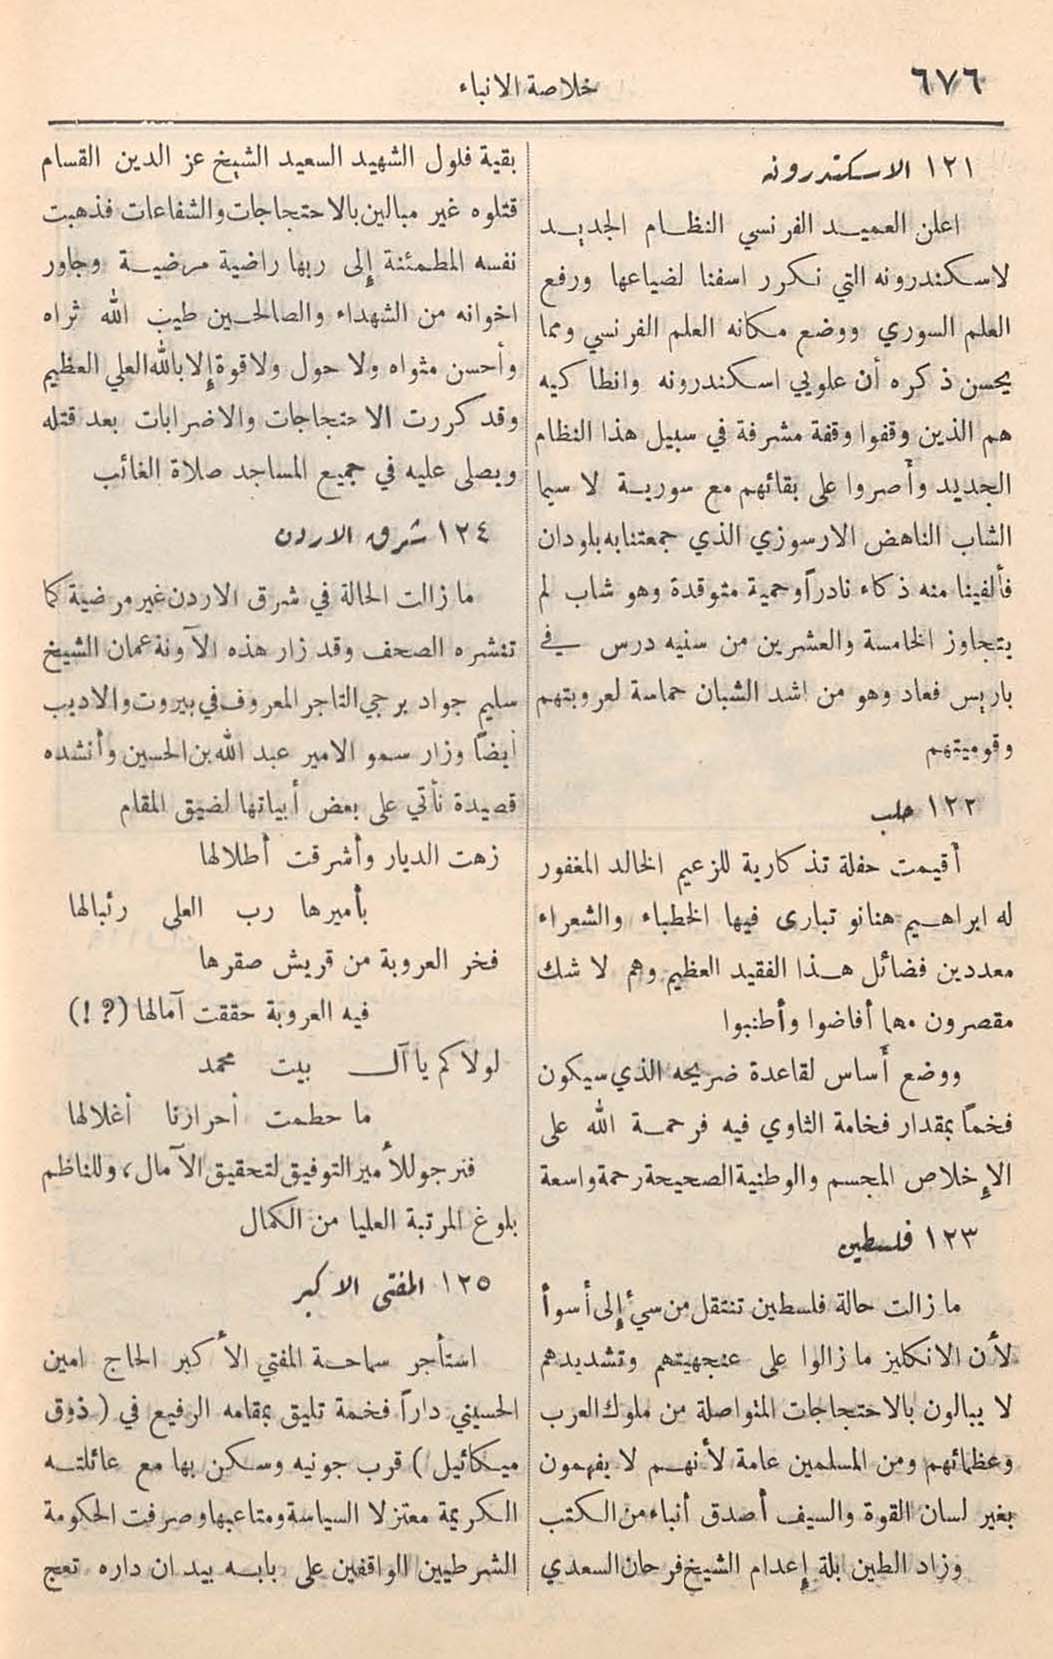 ٦٧٦
خلاصة الانباء
١٢١ الاسكندرونه
اعلن العميد الفرنسي النظام الجديد
لاسكندرونه التي نكرر اسفنا لضياعها ورفع
العلم السوري ووضع مكانه العلم الفرنسي ومما
يحسن ذكره أن علويي اسكندرونه وانطاكيه
هم الذين وقفوا وقفة مشرفة في سبيل هذا النظام
الجديد وأصروا على بقائهم مع سورية لا سيما
الشاب الناهض الارسوزي الذي جمعتنا به بلودان
فألفينا منه ذكاء نادراً وحمية متوقدة وهو شاب لم
يتجاوز الخامسة والعشرين من سنيه درس في
باريس فعاد وهو من اشد الشبان حماسة لعروبتهم
وقوميتهم
١٢٢ حلب
أقيمت حفلة تذكارية للزعيم الخالد المغفور
له ابراهيم هنانو تبارى فيها الخطباء والشعراء
معددين فضائل هذا الفقيد العظيم وهم لا شك
مقصرون مهما أفاضوا وأطنبوا
ووضع أساس لقاعدة ضريحه الذي سيكون
فخماً بمقدار فخامة الثاوي فيه فرحمة الله على
الإخلاص المجسم والوطنية الصحيحة رحمة واسعة
١٢٣ فلسطين
ما زالت حالة فلسطين تنتقل من سيء إلى أسوأ
لأن الانكليز ما زالوا على عنجهيتهم وتشديدهم
لا يبالون بالاحتجاجات المتواصلة من ملوك العرب
وعظمائهم ومن المسلمين عامة لأنهم لا يفهمون
بغير لسان القوة والسيف أصدق أنباء من الكتب
وزاد الطين بلة إعدام الشيخ فرحان السعدي
بقية فلول الشهيد السعيد الشيخ عز الدين القسام
قتلوه غير مبالين بالاحتجاجات والشفاعات فذهبت
نفسه المطمئنة إلى ربها راضية مرضية وجاور
اخوانه من الشهداء والصالحين طيب الله ثراه
وأحسن مثواه ولا حول ولا قوة إلا بالله العلي العظيم
وقد كررت الاحتجاجات والاضرابات بعد قتله
ويصلى عليه في جميع المساجد صلاة الغائب
١٢٤ شرق الاردن
ما زالت الحالة في شرق الاردن غير مرضية كما
تنشره الصحف وقد زار هذه الآونة عمان الشيخ
سليم جواد برجي التاجر المعروف في بيروت والاديب
أيضاً وزار سمو الامير عبد الله بن الحسين وأنشده
قصيدة نأتي على بعض أبياتها لضيق المقام
زهت الديار وأشرقت أطلالها
بأميرها رب العلى رئبالها
فخر العروبة من قريش صقرها
فيه العروبة حققت آمالها (؟!)
لولاكم يا آل بيت محمد
ما حطمت أحرارنا أغلالها
فنرجو للأمير التوفيق لتحقيق الآمال، وللناظم
بلوغ المرتبة العليا من الكمال
١٢٥ المفتي الاكبر
استأجر سماحة المفتي الأكبر الحاج امين
الحسيني داراً فخمة تليق بمقامه الرفيع في (ذوق
ميكائيل) قرب جونيه وسكن بها مع عائلته
الكريمة معتزلا السياسة ومتاعبها وصرفت الحكومة
الشرطيين الواقفين على بابه بيد ان داره تعج